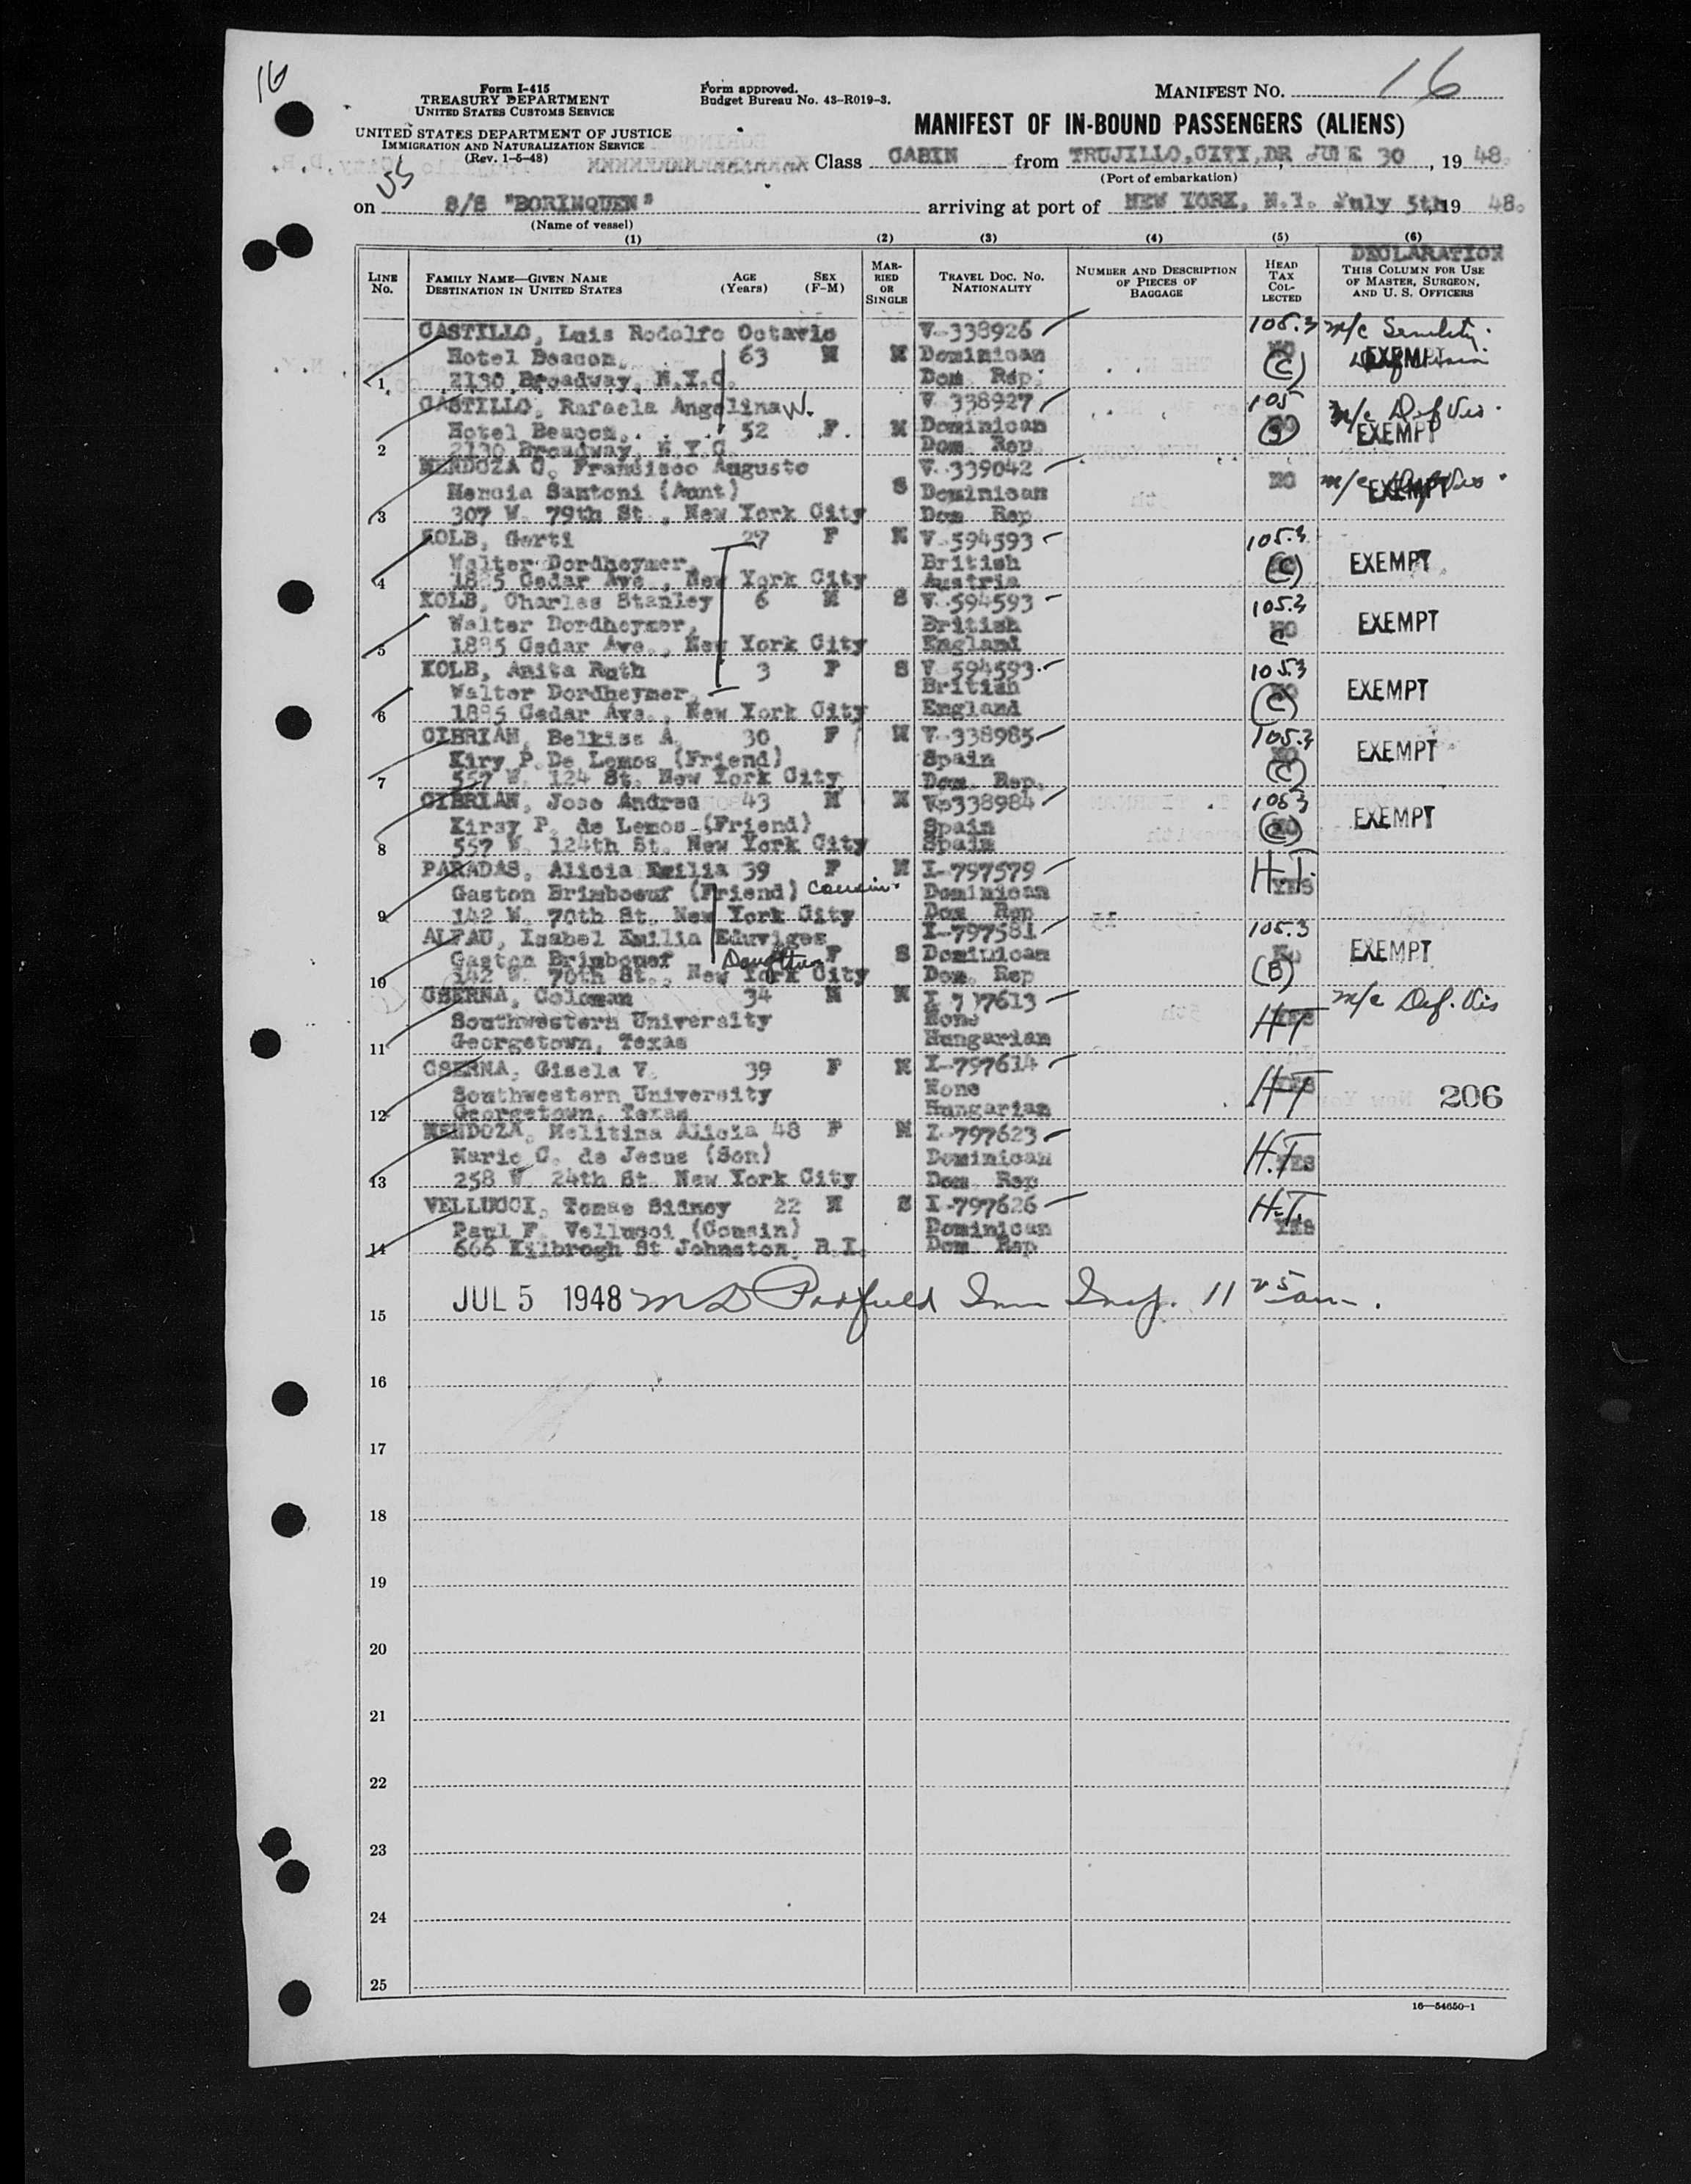 16
Form I-415
TREASURY DEPARTMENT
UNITED STATES CUSTOMS SERVICE
UNITED STATES DEPARTMENT OF JUSTICE
IMMIGRATION AND NATURALIZATION SERVICE
(Rev. 1-5-48)
Form approved.
Budget Bureau No. 43-R019-3.
MANIFEST NO. 16
MANIFEST OF IN-BOUND PASSENGERS (ALIENS)
Class CABIN from TRUJILLO, CITY, DR JUNE 30, 1948.
(Port of embarkation)
on S/S "BORINQUEN" arriving at port of NEW YORK, N.Y. July 5th, 1948.
(Name of vessel)
(1) (2) (3) (4) (5) (6)
DECLARATION
LINE No. FAMILY NAME—GIVEN NAME DESTINATION IN UNITED STATES AGE (Years) SEX (F-M) MARRIED OR SINGLE TRAVEL DOC. NO. NATIONALITY NUMBER AND DESCRIPTION OF PIECES OF BAGGAGE HEAD TAX COLLECTED THIS COLUMN FOR USE OF MASTER, SURGEON, AND U. S. OFFICERS
CASTILLO, Luis Rodolfo Octavio V-338926 105.3 m/c Senility
Hotel Beacon, 63 M M Dominican NO EXEMPT
1 2130 Broadway, N.Y.C. Dom. Rep. (C)
CASTILLO, Rafaela Angelina W. V 338927 105 m/c Def Vis.
Hotel Beacon, 52 F. M Dominican NO EXEMPT
2 2130 Broadway, N.Y.C. Dom. Rep.
MENDOZA C, Francisco Augusto V-339042
Hercia Santoni (Aunt) S Dominican NO m/c Def Vis. EXEMPT
3 307 W. 79th St., New York City Dom Rep.
KOLB, Gerti 27 F M V-594593 105.3
Walter Dordheymer, British (C) EXEMPT
4 1885 Cedar Ave., New York City Austria
KOLB, Charles Stanley 6 M S V-594593 105.3
Walter Dordheymer, British NO C EXEMPT
5 1885 Cedar Ave., New York City England
KOLB, Anita Ruth 3 F S V 594593 105.3
Walter Dordheymer, British NO (C) EXEMPT
6 1885 Cedar Ave., New York City England
CIBRIAN, Belkiss A. 30 F M V-338985 105.3
Kiry P. De Lemos (Friend) Spain (C) EXEMPT
7 557 W. 124 St. New York City Dom. Rep.
CIBRIAN, Jose Andres 43 M M V-338984 105.3
Kirsy P. de Lemos (Friend) Spain (C) EXEMPT
8 557 W. 124th St. New York City Spain
PARADAS, Alicia Emilia 39 F M I-797579 H.T.
Gaston Brimboeuf (Friend) Cousin. Dominican YES
9 142 W. 70th St. New York City Dom Rep
ALFAU, Isabel Emilia Eduviges I-797581 105.3
Gaston Brimbouef Daughter F S Dominican No EXEMPT
10 142 W. 70th St., New York City Dom. Rep (B)
CSERNA, Coloman 34 M M I 797613 m/c Def. Vis
Southwestern University None YES HT
11 Georgetown, Texas Hungarian
CSERNA, Gisela V. 39 F M I-797614
Southwestern University None YES HT 206
12 Georgetown, Texas Hungarian
MENDOZA, Melitina Alicia 48 F M I-797623
Mario C. de Jesus (Son) Dominican H.T. YES
13 258 W. 24th St. New York City Dom. Rep
VELLUCCI, Tomas Sidney 22 M S I-797626 H.T.
Paul F. Vellucci (Cousin) Dominican YES
14 666 Kilbrogh St Johnston, R.I. Dom Rep
JUL 5 1948 M D Padfield Imm Insp. 11 25 am.
15
16
17
18
19
20
21
22
23
24
25
16—54650-1